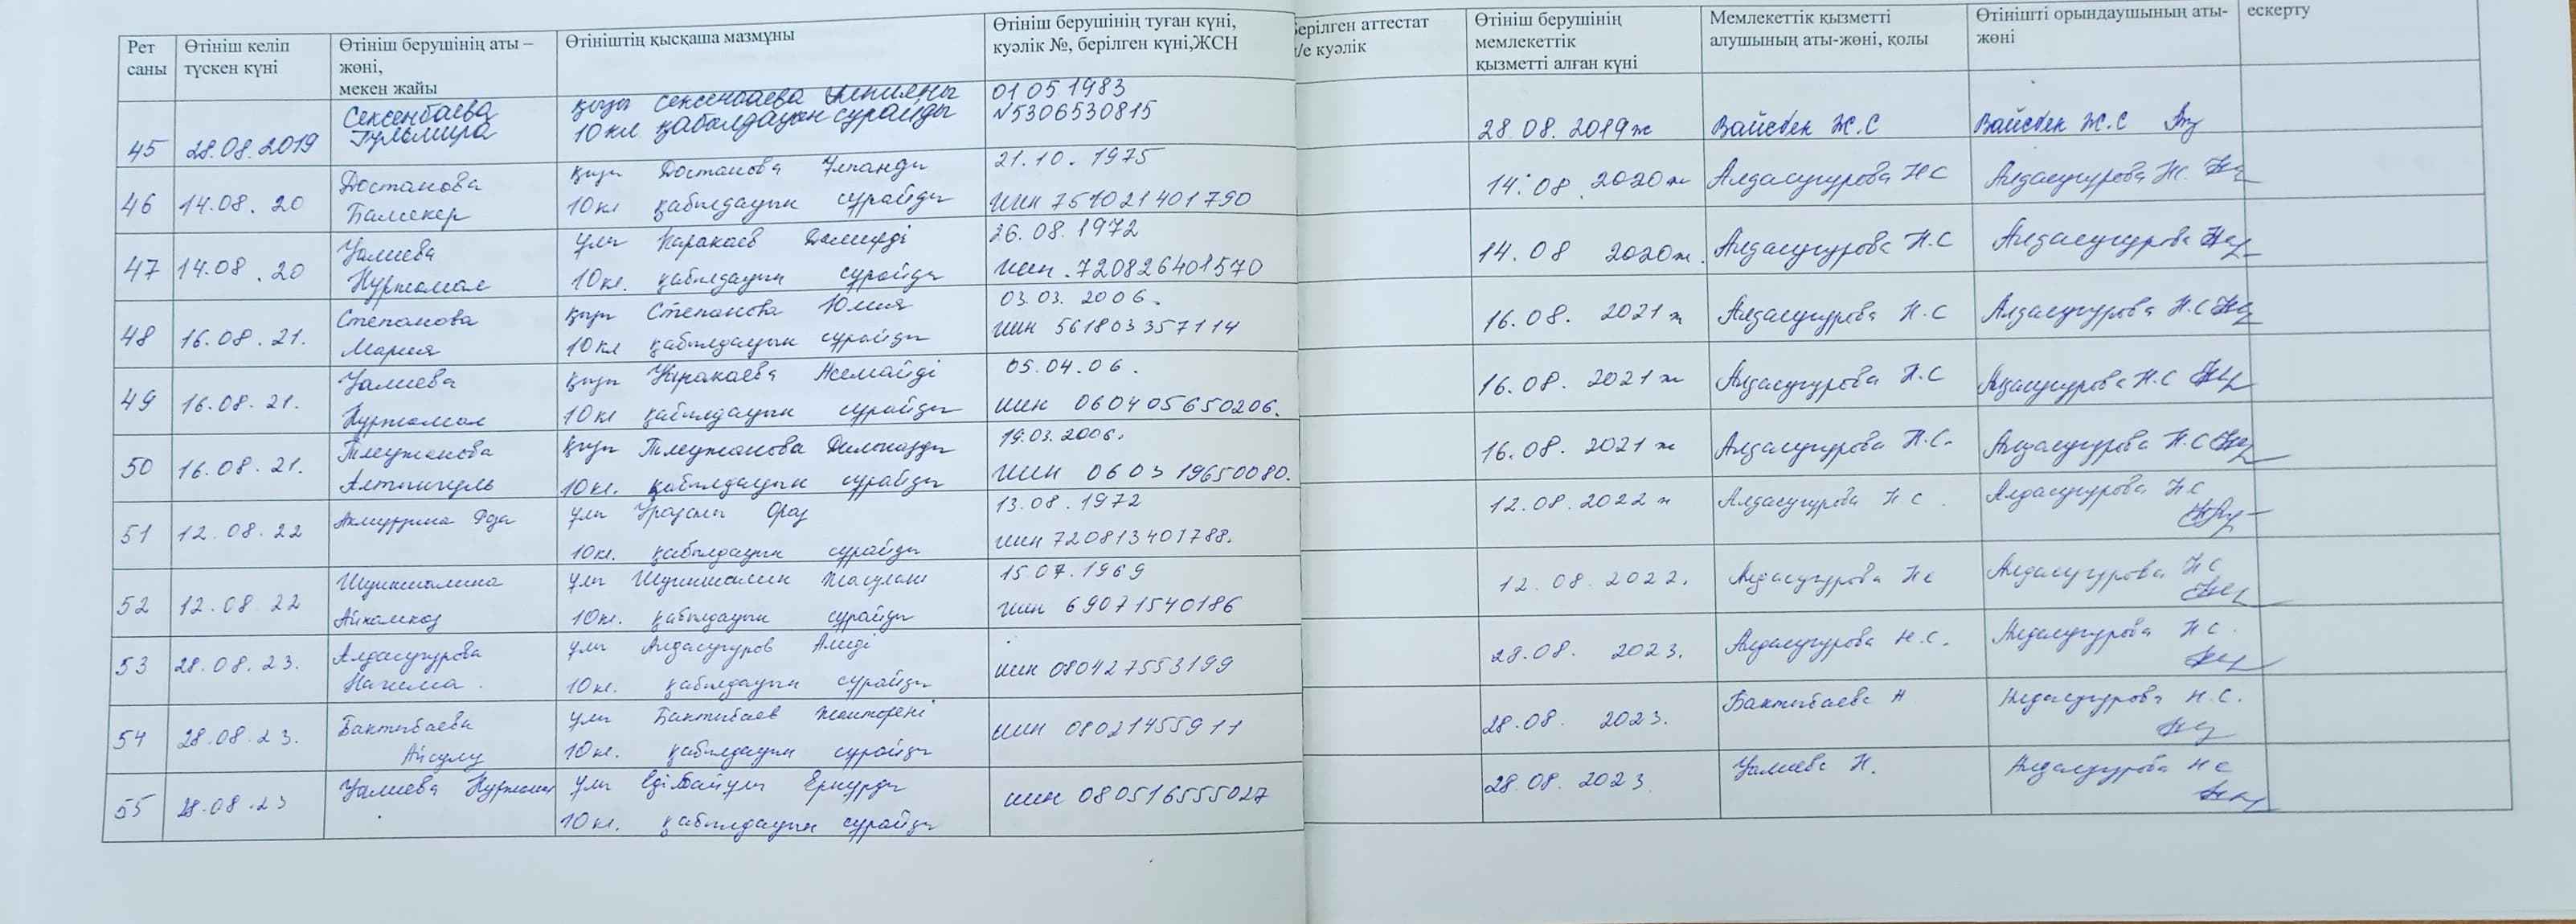 Рет саны
Өтініш келіп түскен күні
Өтініш берушінің аты – жөні, мекен жайы
Өтініштің қысқаша мазмұны
Өтініш берушінің туған күні, куәлік №, берілген күні,ЖСН
Берілген аттестат
Өтініш берушінің мемлекеттік қызметті алған күні
Мемлекеттік қызметті алушының аты-жөні, қолы
Өтінішті орындаушының аты-жөні
ескерту
45 28.08.2019 Сексенбаева қызы Сексенбаева 01 05 1983 28.08.2019ж Вайсбек Ж.С Вайсбек Ж.С
Гульмира 10 кл қабылдауын сұрайды №5306530815
46 14.08.20 Достанова қызы Достанова 21.10.1975 14.08 2020ж Алдасугурова Н С Алдасугурова Н.
10кл қабылдауын сұрайды ИИН 751021401790
47 14.08.20 Уалиева ұлы 26.08.1972 14.08 2020ж. Алдасугурова Н.С Алдасугурова
10кл. қабылдауын сұрайды ИИН.720826401570
48 16.08.21. Степанова қызы Степанова Юлия 03.03.2006. 16.08.2021ж Алдасугурова Н.С Алдасугурова Н.С
Мария 10кл қабылдауын сұрайды ИИН 561803357114
49 16.08.21. Уалиева қызы 05.04.06. 16.08.2021ж Алдасугурова Н.С Алдасугурова Н.С
10кл қабылдауын сұрайды ИИН 060405650206.
50 16.08.21. Тлеужанова қызы Тлеужанова 19.03.2006. 16.08.2021ж Алдасугурова Н.С. Алдасугурова Н.С
Алтынгуль 10кл. қабылдауын сұрайды ИИН 060319650080.
51 12.08.22 ұлы 13.08.1972 12.08.2022ж Алдасугурова Н С. Алдасугурова Н С
10кл. қабылдауын сұрайды ИИН 720813401788.
52 12.08.22 ұлы 15.07.1969 12.08.2022. Алдасугурова Н С Алдасугурова Н С
10кл. қабылдауын сұрайды ИИН 69071540186
53 28.08.23. Алдасугурова ұлы Алдасугуров 28.08. 2023. Алдасугурова Н.С. Алдасугурова Н С.
10кл. қабылдауын сұрайды ИИН 080427553199
54 28.08.23. Бактыбаева ұлы Бактыбаев 28.08. 2023. Бактыбаева А Алдасугурова Н.С.
Айсулу 10кл. қабылдауын сұрайды ИИН 08021455911
55 28.08.23 Уалиева ұлы 28.08.2023 Уалиева Н. Алдасугурова Н С
10кл. қабылдауын сұрайды ИИН 080516555027